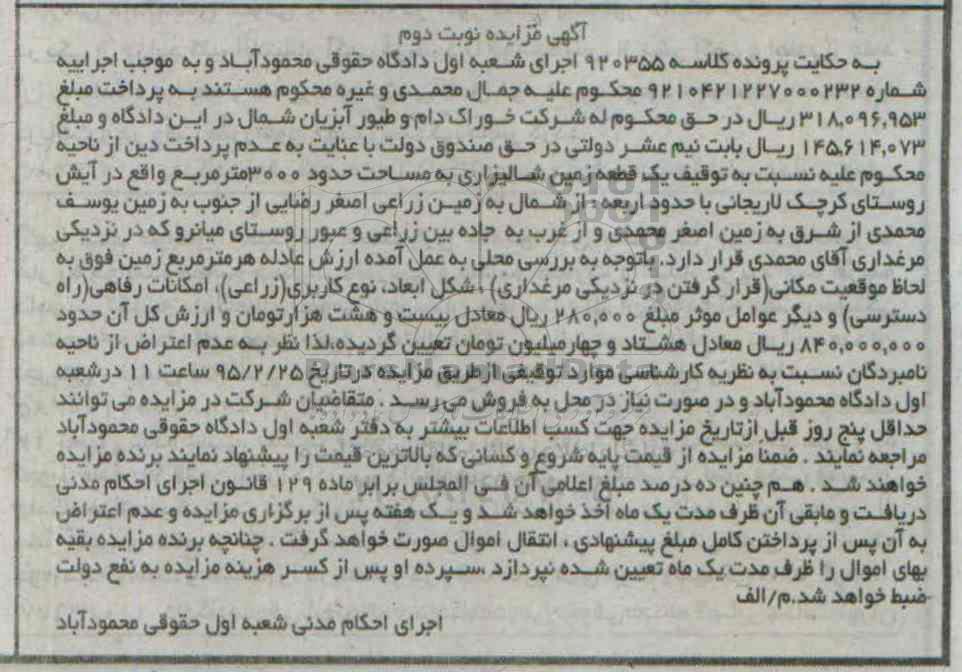 آگهی مزایده نوبت دوم
به حکایت پرونده کلاسه ۹۲۰۳۵۵ اجرای شعبه اول دادگاه حقوقی محمودآباد و به موجب اجراییه
شماره ۹۲۱۰۴۲۱۲۲۷۰۰۰۲۳۲ محکوم علیه جمال محمدی و غیره محکوم هستند به پرداخت مبلغ
۳۱۸,۰۹۶,۹۵۳ ریال در حق محکوم له شرکت خوراک دام و طیور آبزیان شمال در این دادگاه و مبلغ
۱۴۵,۶۱۴,۰۷۳ ریال بابت نیم عشر دولتی در حق صندوق دولت با عنایت به عدم پرداخت دین از ناحیه
محکوم علیه نسبت به توقیف یک قطعه زمین شالیزاری به مساحت حدود ۳۰۰۰مترمربع واقع در آیش
روستای کرچک لاریجانی با حدود اربعه : از شمال به زمین زراعی اصغر رضایی از جنوب به زمین یوسف
محمدی از شرق به زمین اصغر محمدی و از غرب به جاده بین زراعی و عبور روستای میانرو که در نزدیکی
مرغداری آقای محمدی قرار دارد. باتوجه به بررسی محلی به عمل آمده ارزش عادله هرمترمربع زمین فوق به
لحاظ موقعیت مکانی(قرار گرفتن در نزدیکی مرغداری) ، شکل ابعاد، نوع کاربری(زراعی)، امکانات رفاهی(راه
دسترسی) و دیگر عوامل موثر مبلغ ۲۸۰,۰۰۰ ریال معادل بیست و هشت هزارتومان و ارزش کل آن حدود
۸۴۰,۰۰۰,۰۰۰ ریال معادل هشتاد و چهارمیلیون تومان تعیین گردیده،لذا نظر به عدم اعتراض از ناحیه
نامبردگان نسبت به نظریه کارشناسی موارد توقیفی ازطریق مزایده درتاریخ ۹۵/۲/۲۵ ساعت ۱۱ درشعبه
اول دادگاه محمودآباد و در صورت نیاز در محل به فروش می رسد . متقاضیان شرکت در مزایده می توانند
حداقل پنج روز قبل ازتاریخ مزایده جهت کسب اطلاعات بیشتر به دفتر شعبه اول دادگاه حقوقی محمودآباد
مراجعه نمایند . ضمنا مزایده از قیمت پایه شروع و کسانی که بالاترین قیمت را پیشنهاد نمایند برنده مزایده
خواهند شد . هم چنین ده درصد مبلغ اعلامی آن فی المجلس برابر ماده ۱۲۹ قانون اجرای احکام مدنی
دریافت و مابقی آن ظرف مدت یک ماه اخذ خواهد شد و یک هفته پس از برگزاری مزایده و عدم اعتراض
به آن پس از پرداختن کامل مبلغ پیشنهادی ، انتقال اموال صورت خواهد گرفت . چنانچه برنده مزایده بقیه
بهای اموال را ظرف مدت یک ماه تعیین شده نپردازد ،سپرده او پس از کسر هزینه مزایده به نفع دولت
ضبط خواهد شد.م/الف
اجرای احکام مدنی شعبه اول حقوقی محمودآباد